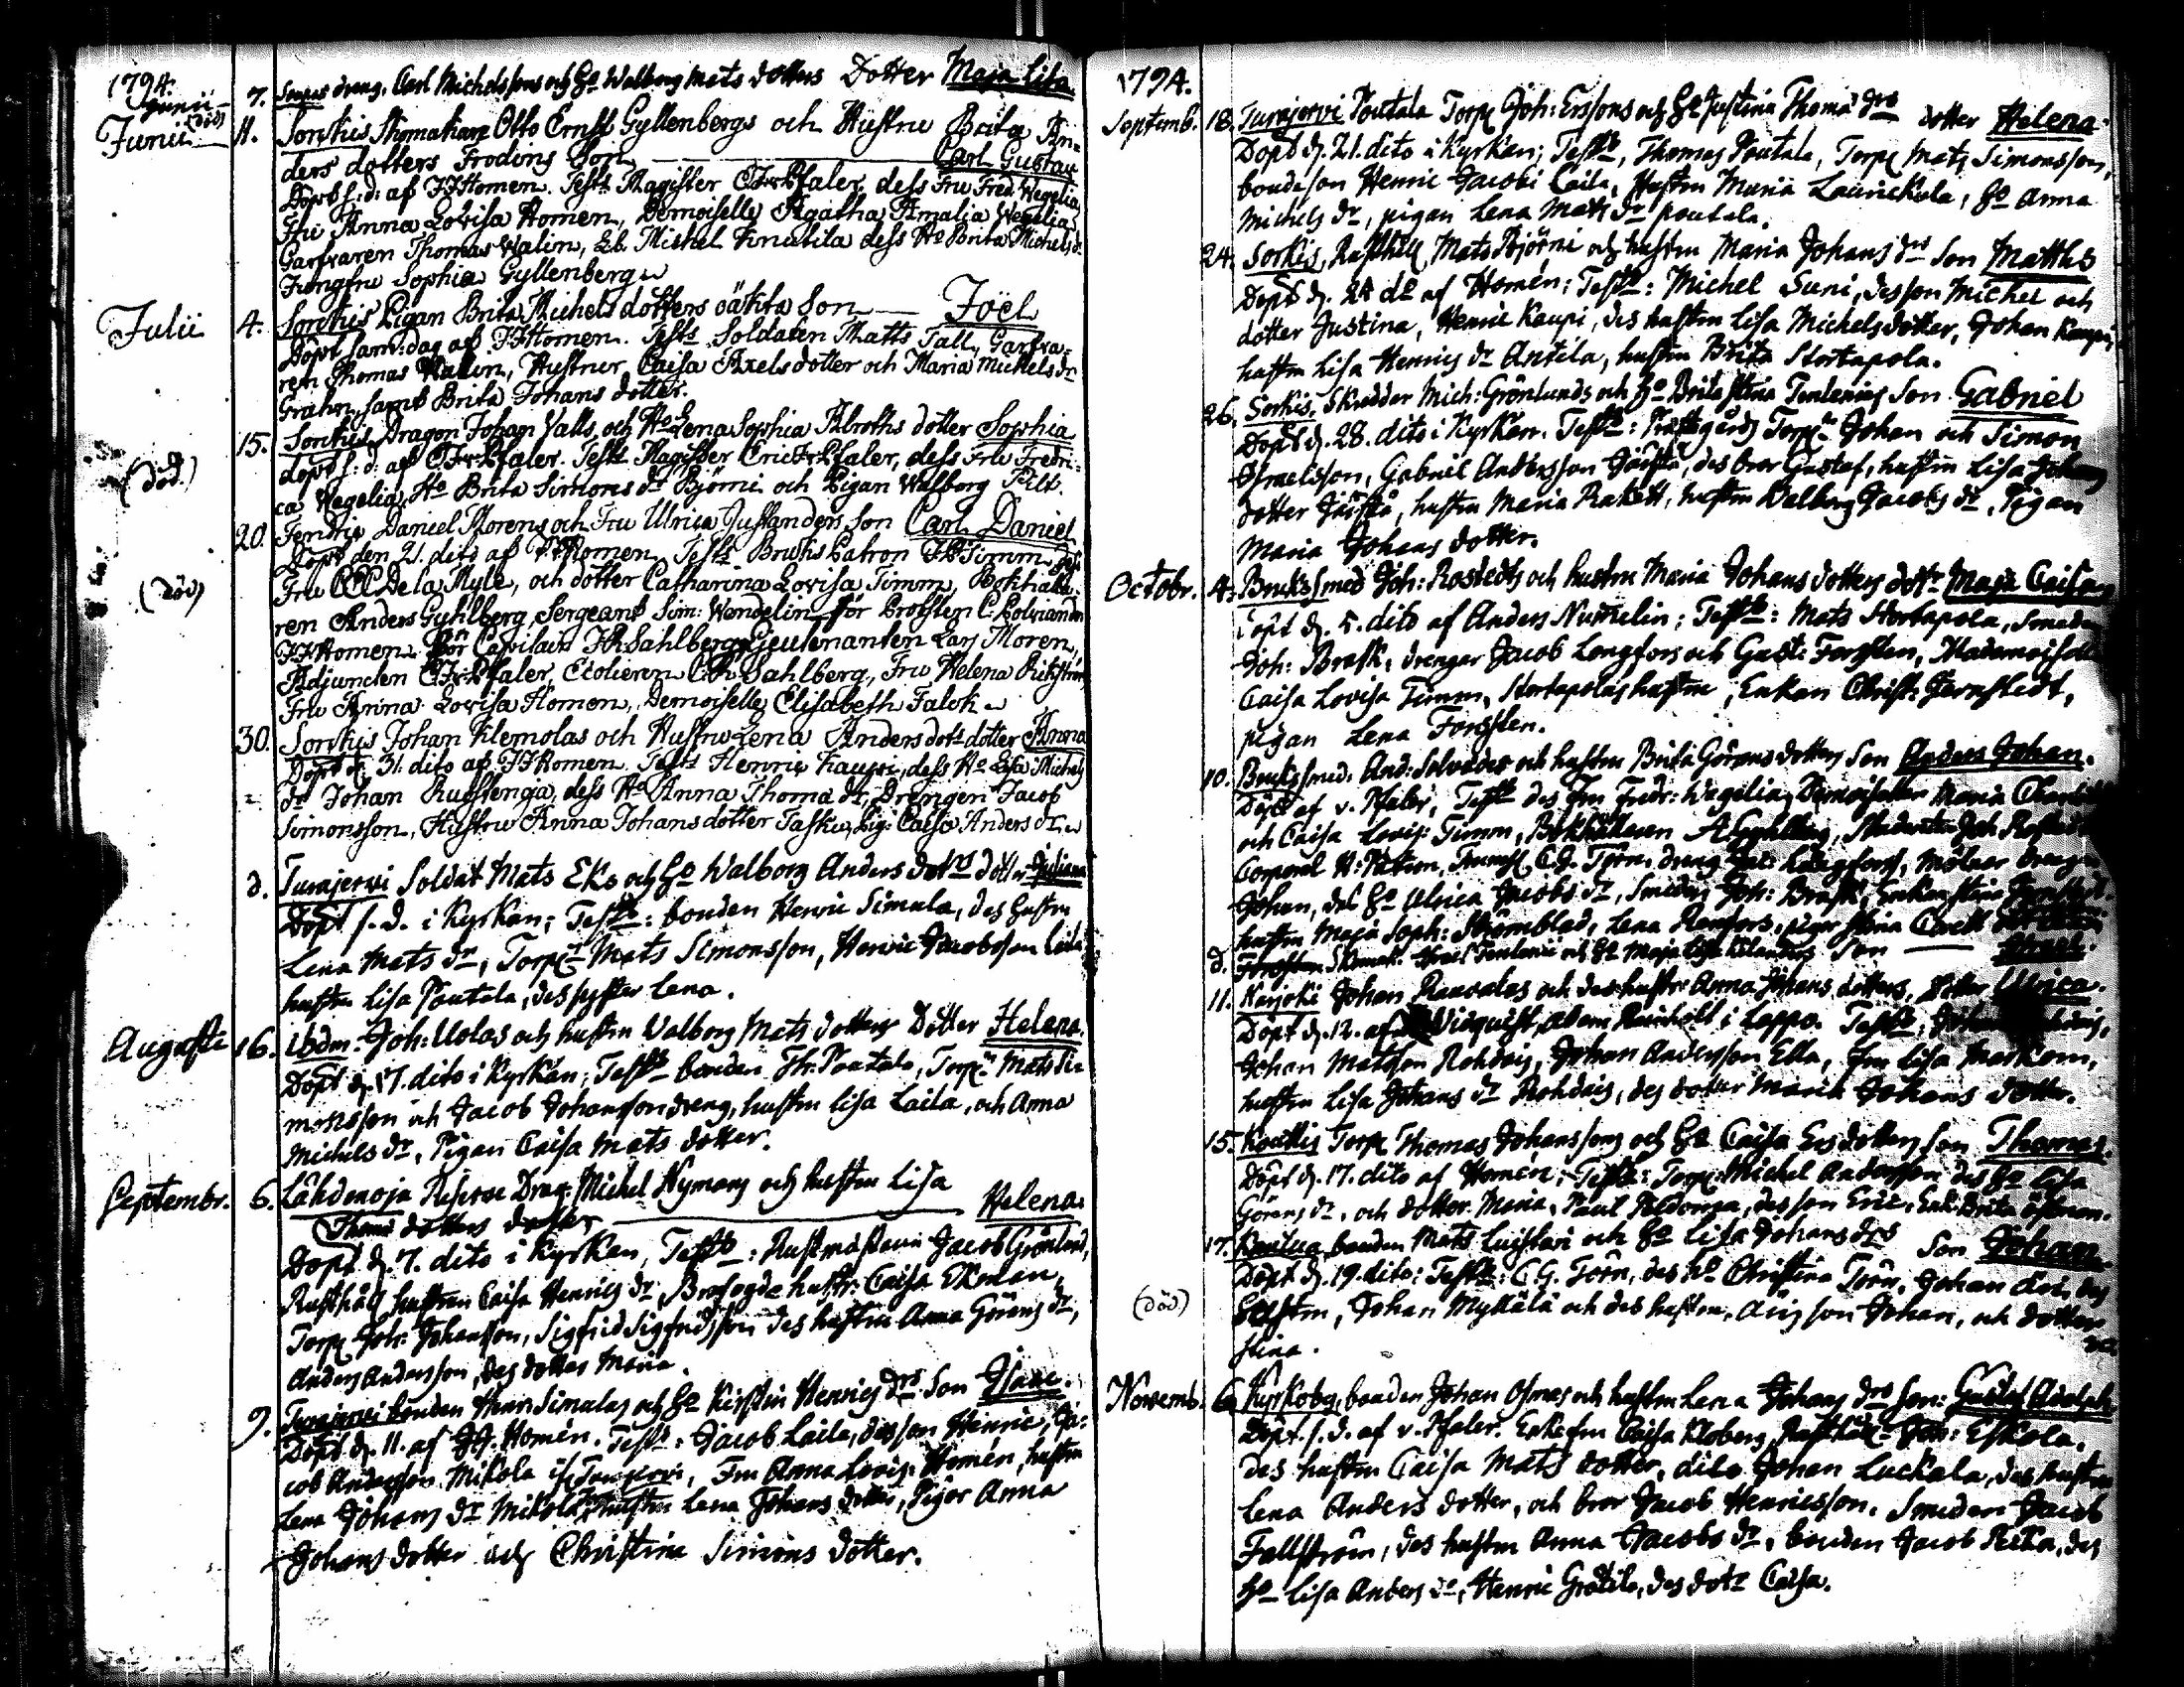 1794.
Junii
7. drang. Carl Michelssons och Ho Walborg Mats dotters Dotter Maja Lisa
(död)
Junii 11. Sorkis Skomakare Otto Ernst Gyllenbergs och Hustru Brita An-
ders dotters Frodins Son Carl Gustav
Döpt s: d: af Homen. Testes Magister Pfaler, dess Fru Fred: Wegelia,
Fru Anna Lovisa Homen, Demoiselle Agatha Amalia Wegelia,
Garfvaren Thomas Walin, Michel Knutila dess Ho Brita Michels dr
Jungfru Sophia Gyllenberg
Julii 4. Sorkis Pigan Brita Michels dotters oäkta Son Joël
Döpt sam: dag af Homen. Testes Soldaten Matts Tall, Garfva-
ren Thomas Walin, Hustrur Caisa Axelsdotter och Maria Michels dr
Grahn, samt Brita Johans dotter.
15. Sorkis Dragon Johan Valls och Ho Lena Sophia dotter Sophia
(död.)
döpt s: d: af Pfaler. Testes Magister Pfaler, dess Fru Fredri-
ca Wegelia, Ho Brita Simons dr Björni och Pigan Walborg
20. Fendric Daniel Morens och Fru Ulrica Justanders Son Carl Daniel
Döpt den 21. dito af Homen. Testes Bruks Patron Timm dess
(död)
Fru De la Myle, och dotter Catharina Lovisa Timm, Bokhålla-
ren Anders Gyhlberg, Sergeant Sim: Wendelin för Brobsten
Homen för Capitain Sahlberg Lieutenanten Lars Moren,
Adjuncten Pfaler, Ecolieren Sahlberg, Fru Helena
Fru Anna Lovisa Homen, Demoiselle Elisabeth Falck
30. Sorkis Johan Klemolas och Hustru Lena Anders dotr dotter Anna
Döpt d. 31. dito af Homen. Testes Henric Kauppi, dess Ho Lisa Michels
dr Johan dess Ho Anna Thoma dr, Drengen Jacob
Simonsson, Hustru Anna Johans dotter Pig: Caisa Anders dr
d. Turajervi Soldat Mats Eks och Ho Walborg Anders dotrs dotter Juliana
Döpt s. d. i Kyrkan; Testes: bonden Henric Simula, des hustru
Lena Mats dr, Torpr Mats Simonsson, Henric Jacobsson Laila
hustru Lisa Poutala, des syster Lena.
Augusti 16. ibdm. Joh: Uolas och hustru Walborg Mats dotters Dotter Helena.
Döpt d. 17. dito i Kyrkan; Testes bonden Th: Poutala, Torpr Mats Si-
monsson och Jacob Johansson dreng, hustru Lisa Laila, och Anna
Michels dr, Pigan Caisa Mats dotter.
Septembr. 6. Lähdenoja Reserve Drag: Michel Nymans och hustru Lisa
Thomæ dotters dotter Helena
Döpt d. 7. dito i Kyrkan, Testes: Rustmästaren Jacob Grönlund,
Rusthåll hustrun Caisa Henrics dr, Brofogde hustr: Caisa Ekman,
Torpr Joh: Johansson, Sigfrid Sigfridsson des hustru Anna Görans dr,
Anders Andersson, des dotter Maria.
9. Turajervi bonden Henr: Simulas och Ho Kirstin Henrics drs Son Isaac.
Döpt d. 11. af Homén. Testes: Jacob Laila, des son Henric, Ja-
cob Andersson Mikola Turajervi, Fru Anna Lovis: Homén, hustru
Lena Johans dr Mikola, hustru Lena Johans dotter, Pigor Anna
Johans dotter och Christina Simons dotter.
1794.
Septemb. 18. Turajervi Poutala Torpr Joh: Erssons och Ho Justina Thomæ drs dotter Helena
Döpt d. 21. dito i Kyrkan; Testes, Thomas Poutala, Torpr Mats Simonsson,
bondeson Henric Jacobi Laila, hustru Maria Laurickala, Ho Anna
Michels dr, pigan Lena Mats dr Poutala.
24. Sorkis, Rusthåll Mats Björni och hustru Maria Johans drs Son Matths
Döpt d. 24 do af Homén; Testes: Michel Suni, des son Michel och
dotter Justina, Henric Kaupi, des hustru Lisa Michelsdotter, Johan Kaupi,
hustru Lisa Henrics dr Antila, hustru Brita Stortapola.
26. Sorkis, Skredder Mich: Grönlunds och Ho Brita Stina Tenlenius Son Gabriel
Döpt d. 28. dito i Kyrkan. Testes: Prestgårds Torpr Johan och Simon
Ismelsson, Gabriel Andersson Jäiskä, des bror Gustaf, hustru Lisa Johans
dotter Jäiskä, hustru Maria Rakett, hustru Walborg Jacobs dr, Pigan
Maria Johans dotter.
Octobr. 4. Bruks smed Joh: Rostedts och hustru Maria Johans dotters dottr Maja Caisa
Döpt d. 5. dito af Anders Numelin; Testes: Mats Stortapola, Smeden
Joh: Brask, drengar Jacob Longfors och Gust: Forssten, Mademoiselle
Caisa Lovisa Timm, Stortapolas hustru, Enkan Christ: Jernstedt,
pigan Lena Forssten.
10. Bruks smed. And: Solvedes och hustru Brita Görans dotters Son Anders Johan.
Döpt af v. Pfaler, Testes des Fru Fredr: Wegelia, Demoiseller Maria
och Caisa Lovis: Timm, Bokhållaren A Gyhlberg, Studenten Joh
Corporal H: C. G. Törn, dreng Långfors, Mölnar drengen
Johan, des Ho Ulrica Jacobs dr, Smeden Joh: Brask, Enkan Stina
hustru Maja Soph: Strömblad, Lena pigor Stina
d. Forssten Skomak: Tenlenii och Ho Maja Lisa Son
11. Karjoki Johan Rauvalas och des hustru Anna Johans dotters, dotter Ulrica.
Döpt d. 12. af Widquist, Adam Reinholt i Loppo. Testes,
Johan Matsson Rohdais, Johan Andersson Ella, Fru Lisa
hustru Lisa Johans dr Rohdais, des dotter Maria Johans dotter.
15. Kouttis Torpr Thomas Johanssons och Ho Caisa Ersdotters son Thomas.
Döpt d. 17. dito af Homén; Testes: Torpr Michel Andersson des Ho Lisa
Görans dr, och dotter Maria, Paul des son Eric, Enk: Brita
17. bonden Mats Luistari och Ho Lisa Johans drs Son Johan.
Döpt d. 19. dito: Testes: C. G. Törn, des Ho Christina Törn, Johan des
(död)
hustru, Johan Mykälä och des hustru, son Johan, och dotter
Stina.
Novemb. 6. Kyrkoby, bonden Johan och hustru Lena Johans drs Son: Gustaf Adolph
Döpt. s. d. af v. Pfaler. Caisa Kloberg, Joh: Eskola.
des hustru Caisa Mats dotter, dito Johan Luckala, des hustru
Lena Anders dotter, och bror Jacob Henricsson. Smeden Jacob
Fallström, des hustru Anna Jacobs dr, bonden Jacob des
Ho Lisa Anders dr, Henric Grötila, des dotr Caisa.